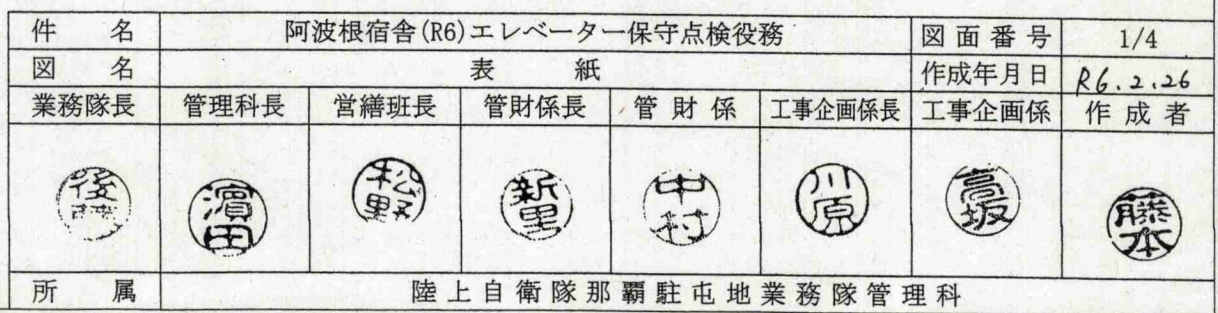 件名 阿波根宿舎(R6)エレベーター保守点検役務 図面番号 1/4
図名 表紙 作成年月日 R6.2.26
業務隊長 管理科長 営繕班長 管財係長 管財係 工事企画係長 工事企画係 作成者
後藤 濵田 松野 新里 中村 川原 高坂 藤本
所属 陸上自衛隊那覇駐屯地業務隊管理科